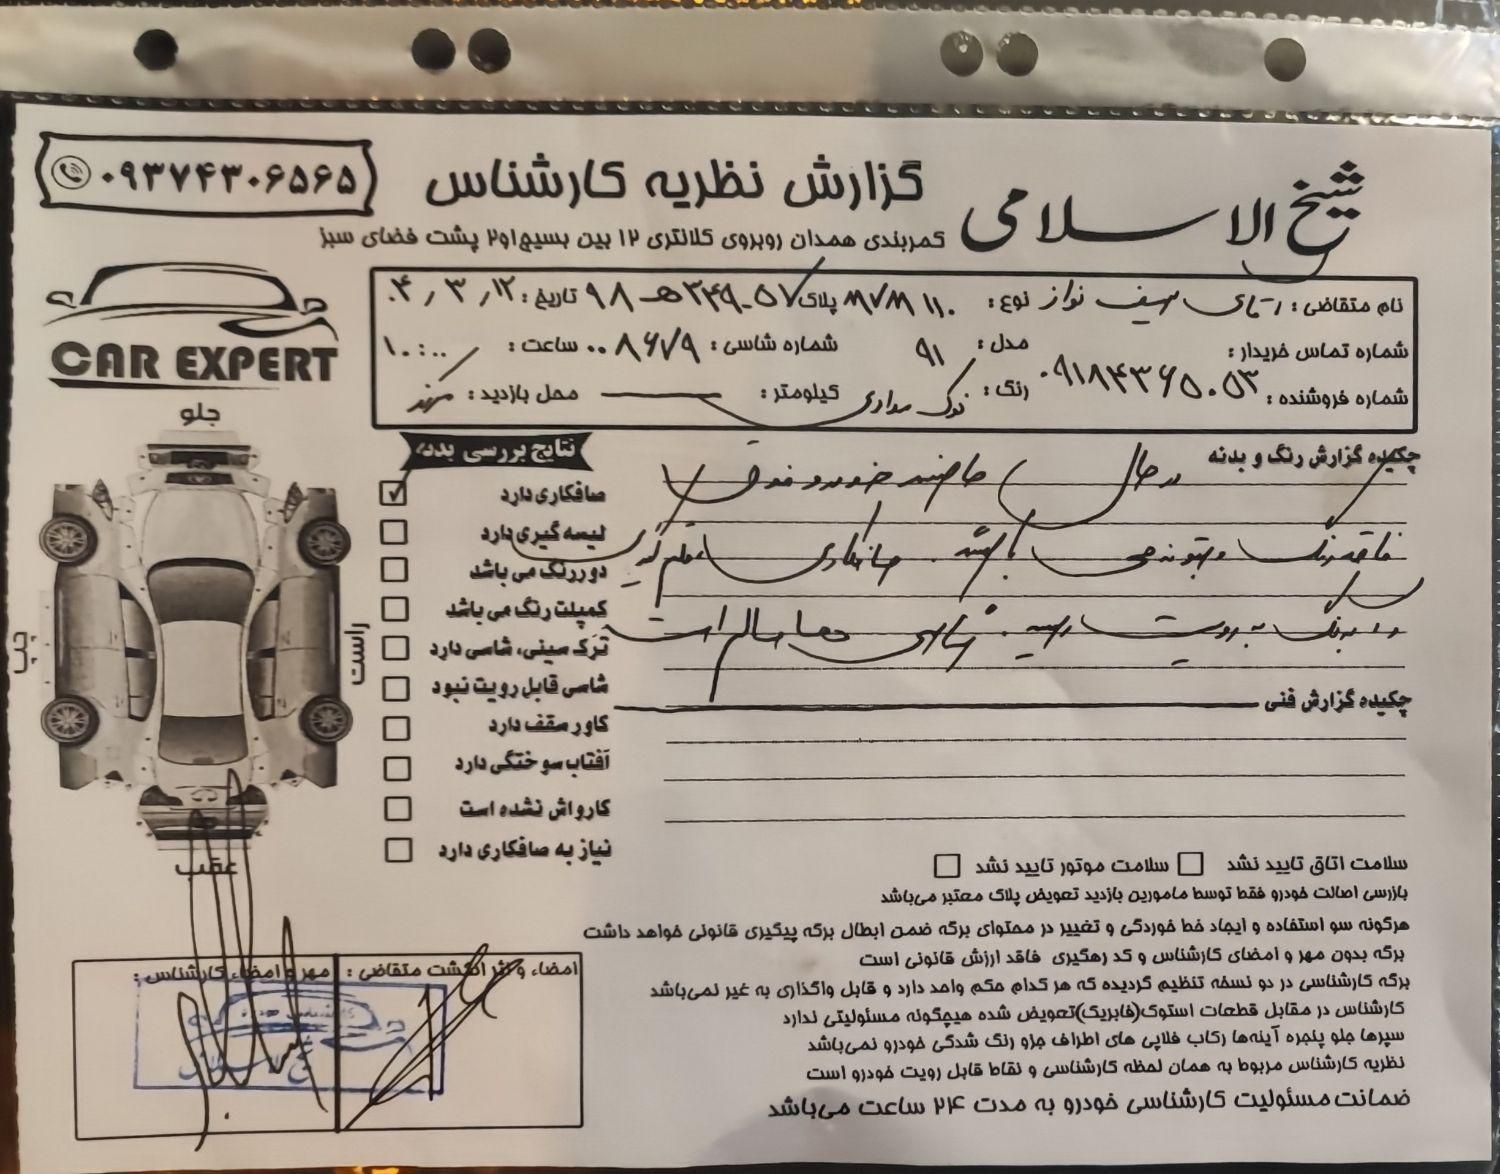 ۰۹۳۷۴۳۰۶۵۶۵
گزارش نظریه کارشناس
شیخ الاسلامی
کمربندی همدان روبروی کلانتری ۱۲ بین بسیج۱و۲ پشت فضای سبز
CAR EXPERT
نام متقاضی : آقای سیف نواز نوع : MVM 110 پلاک ۵۷-۳۴۹ هـ ۹۸ تاریخ : ۰۴/۳/۱۲
شماره تماس خریدار : مدل : ۹۱ شماره شاسی : ۰۰۸۶۷۹ ساعت : ۱۰:۰۰
شماره فروشنده : ۰۹۱۸۴۳۶۵۰۵۳ رنگ : نوک مدادی کیلومتر : محل بازدید :
چکیده گزارش رنگ و بدنه
در حال حاضر خودرو فوق
فاقد رنگ و بتونه می باشد. صافکاری
به رویت رسید. شاسی ها سالم است
چکیده گزارش فنی
نتایج بررسی بدنه
صافکاری دارد
لیسه گیری دارد
دوررنگ می باشد
کمپلت رنگ می باشد
ترک سینی، شاسی دارد
شاسی قابل رویت نبود
کاور سقف دارد
آفتاب سوختگی دارد
کارواش نشده است
نیاز به صافکاری دارد
جلو
چپ
راست
عقب
سلامت اتاق تایید نشد
سلامت موتور تایید نشد
بازرسی اصالت خودرو فقط توسط مامورین بازدید تعویض پلاک معتبر می‌باشد
هرگونه سو استفاده و ایجاد خط خوردگی و تغییر در محتوای برگه ضمن ابطال برگه پیگیری قانونی خواهد داشت
برگه بدون مهر و امضای کارشناس و کد رهگیری فاقد ارزش قانونی است
برگه کارشناسی در دو نسخه تنظیم گردیده که هر کدام حکم واحد دارد و قابل واگذاری به غیر نمی‌باشد
کارشناس در مقابل قطعات استوک(فابریک)تعویض شده هیچگونه مسئولیتی ندارد
سپرها جلو پنجره آینه‌ها رکاب فلاپی های اطراف جزو رنگ شدگی خودرو نمی‌باشد
نظریه کارشناس مربوط به همان لحظه کارشناسی و نقاط قابل رویت خودرو است
ضمانت مسئولیت کارشناسی خودرو به مدت ۲۴ ساعت می‌باشد
امضاء و اثر انگشت متقاضی :
مهر و امضاء کارشناس :